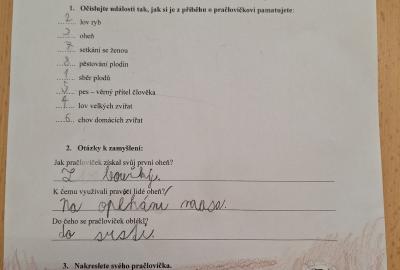 1. Očíslujte události tak, jak si je z příběhu o pračlovíčkovi pamatujete:
2 lov ryb
3 oheň
7 setkání se ženou
8 pěstování plodin
1 sběr plodů
5 pes – věrný přítel člověka
4 lov velkých zvířat
6 chov domácích zvířat
2. Otázky k zamyšlení:
Jak pračlovíček získal svůj první oheň?
Z bouřky.
K čemu využívali pravěcí lidé oheň?
Na opékání masa.
Do čeho se pračlovíček oblékl?
do srsti.
3. Nakreslete svého pračlovíčka.